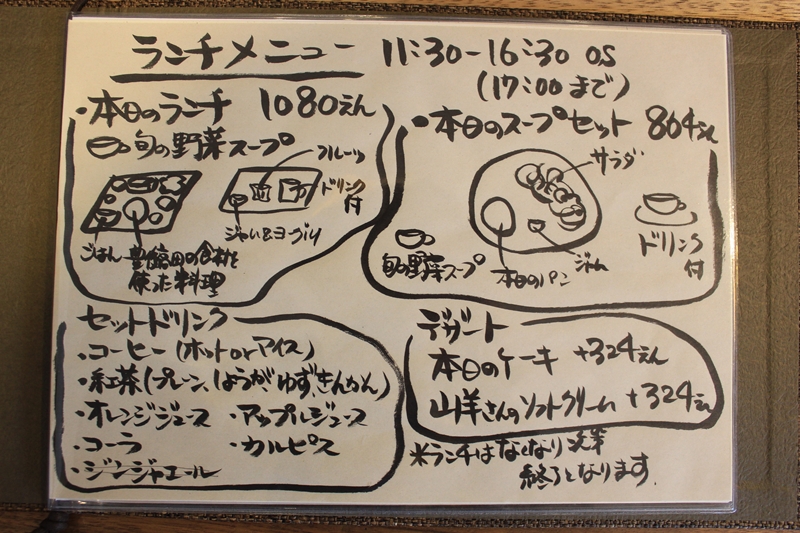 ランチメニュー 11:30-16:30 OS
(17:00まで)
・本日のランチ 1080えん
旬の野菜スープ
フルーツ
ドリンク
付
ジャム&ヨーグルト
ごはん
使った料理
・本日のスープセット 864えん
サラダ
ドリンク
付
旬の野菜スープ
本日のパン
ジャム
セットドリンク
・コーヒー(ホットorアイス)
・紅茶(プレーン、しょうが、ゆず、きんかん)
・オレンジジュース ・アップルジュース
・コーラ ・カルピス
・ジンジャエール
デザート
本日のケーキ +324えん
山羊さんのソフトクリーム +324えん
※ランチはなくなり次第
終了となります。